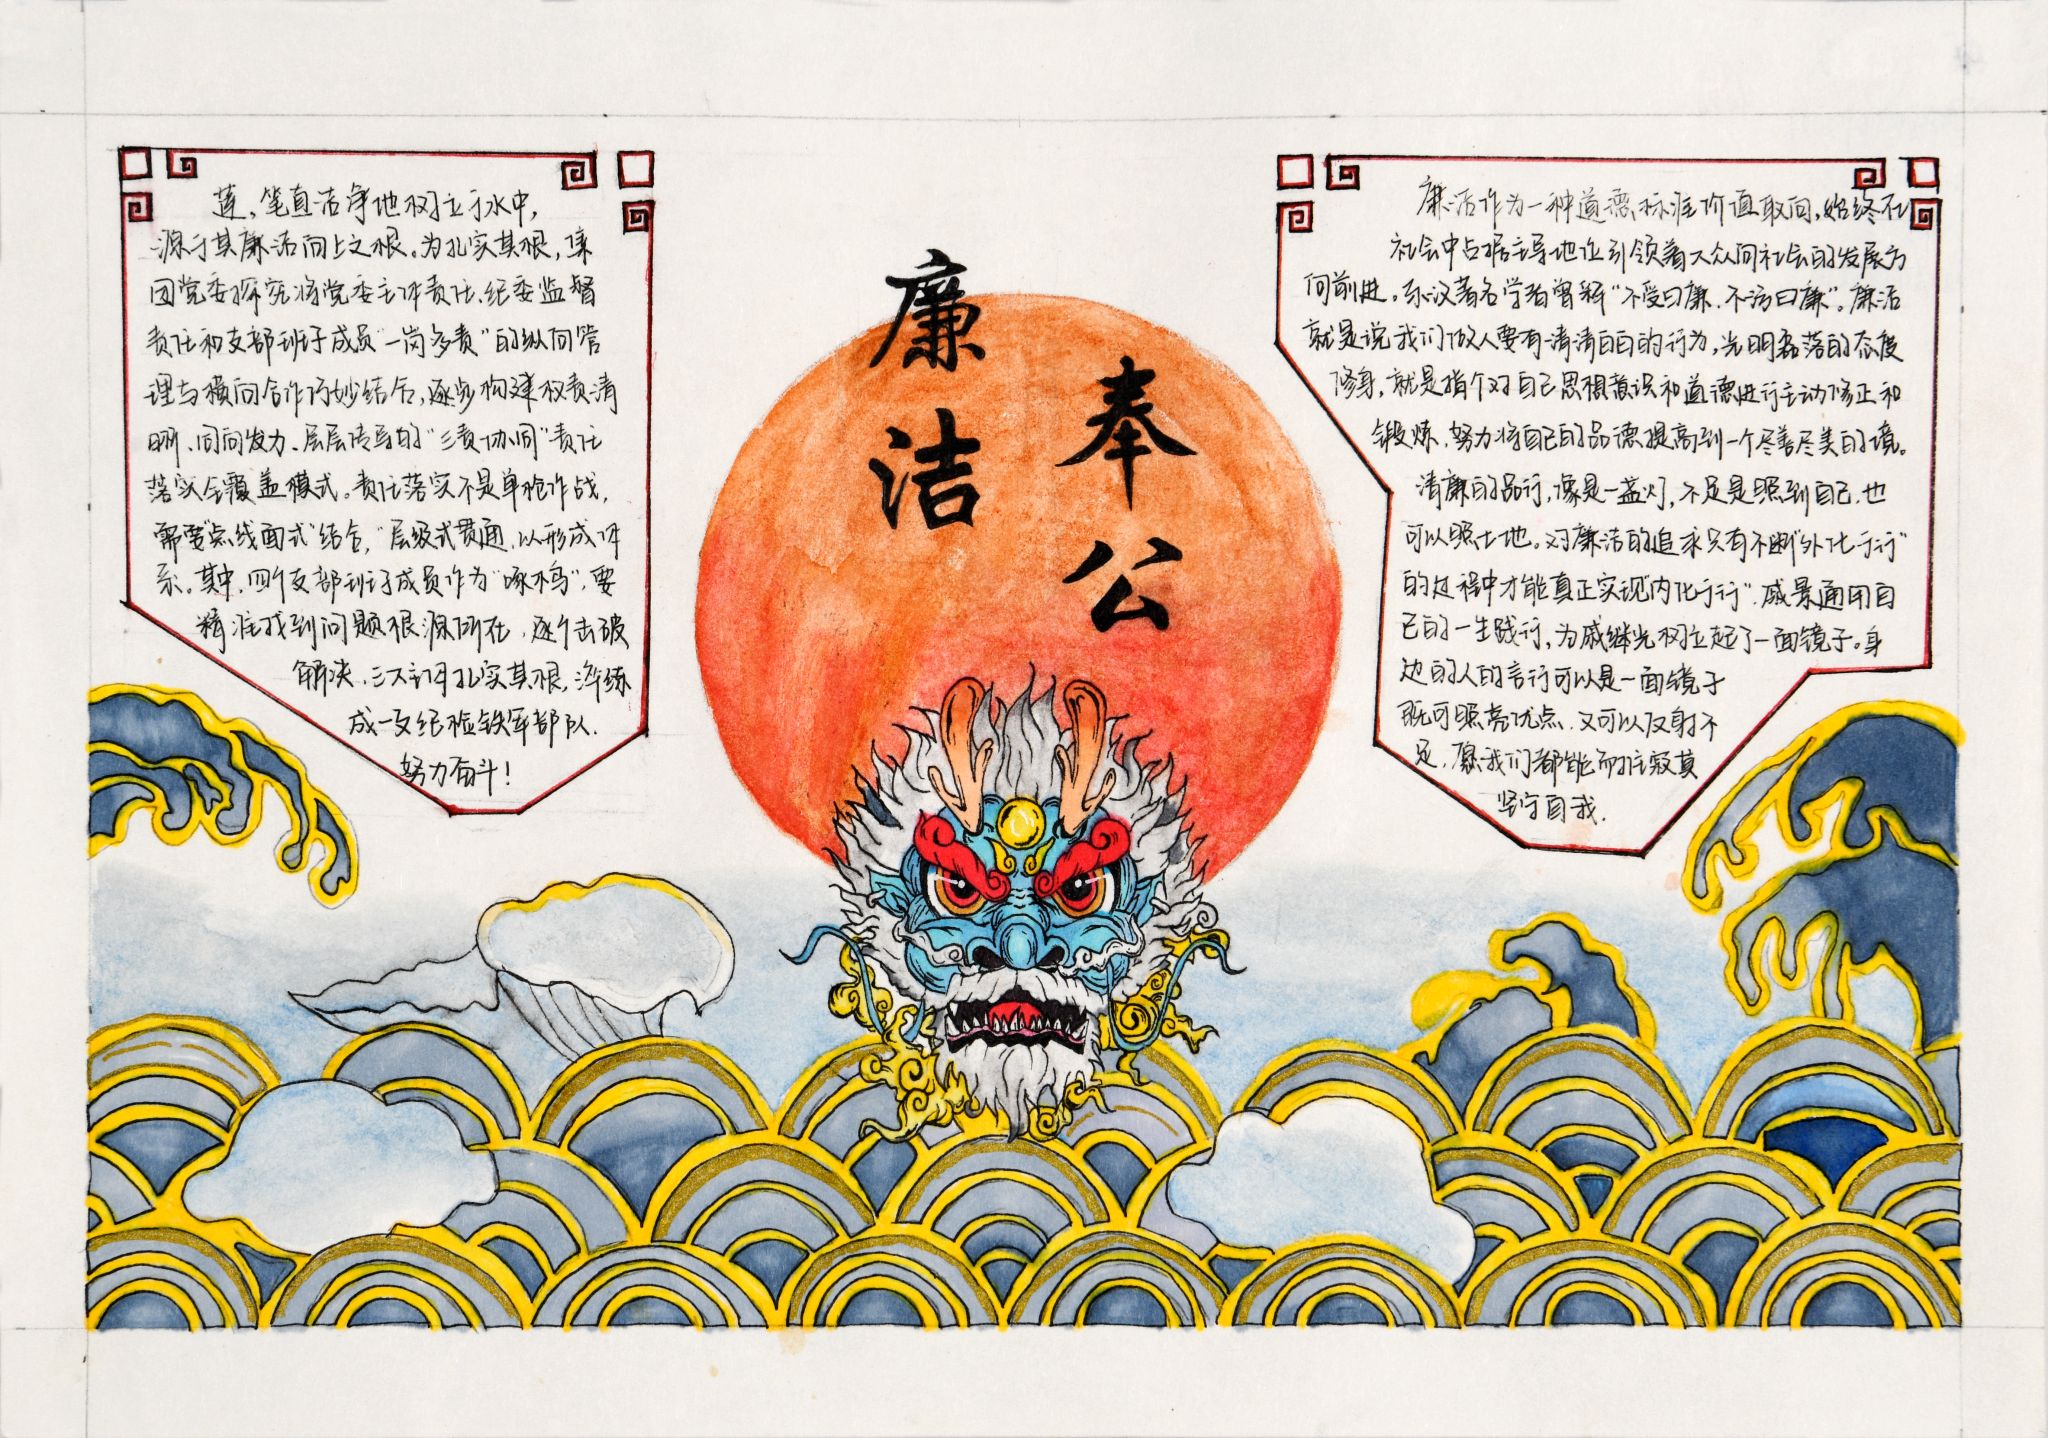 廉洁
奉公
莲，笔直洁净地树立于水中，
源于其廉洁向上之根。为扎实其根，集
团党委探究将党委主体责任、纪委监督
责任和支部班子成员“一岗多责”的纵向管
理与横向合作巧妙结合，逐步构建权责清
晰、同向发力、层层传导的“三责协同”责任
落实全覆盖模式。责任落实不是单枪作战，
需要“点线面式”结合，“层级式贯通，以形成体
系。其中，四个支部班子成员作为“啄木鸟”，要
精准找到问题根源所在，逐个击破
解决，三不谛扎实其根，淬练
成一支纪检铁军部队.
努力奋斗！
廉洁作为一种道德标准价值取向，始终在
社会中占据主导地位引领着大众向社会的发展方
向前进。东汉著名学者曾释“不受曰廉、不污曰廉”。廉洁
就是说我们做人要有清清白白的行为，光明磊落的态度
修身，就是指个对自己思想意识和道德进行主动修正和
锻炼，努力将自己的品德提高到一个尽善尽美的境。
清廉的品行，像是一盏灯，不足是照到自己，也
可以照大地。对廉洁的追求只有不断“外化于行”
的过程中才能真正实现“内化于行”.戚景通用自
己的一生践行，为戚继光树立起了一面镜子。身
边的人的言行可以是一面镜子
既可照亮优点，又可以反射不
足，愿我们都能而拒寂其
坚守自我.